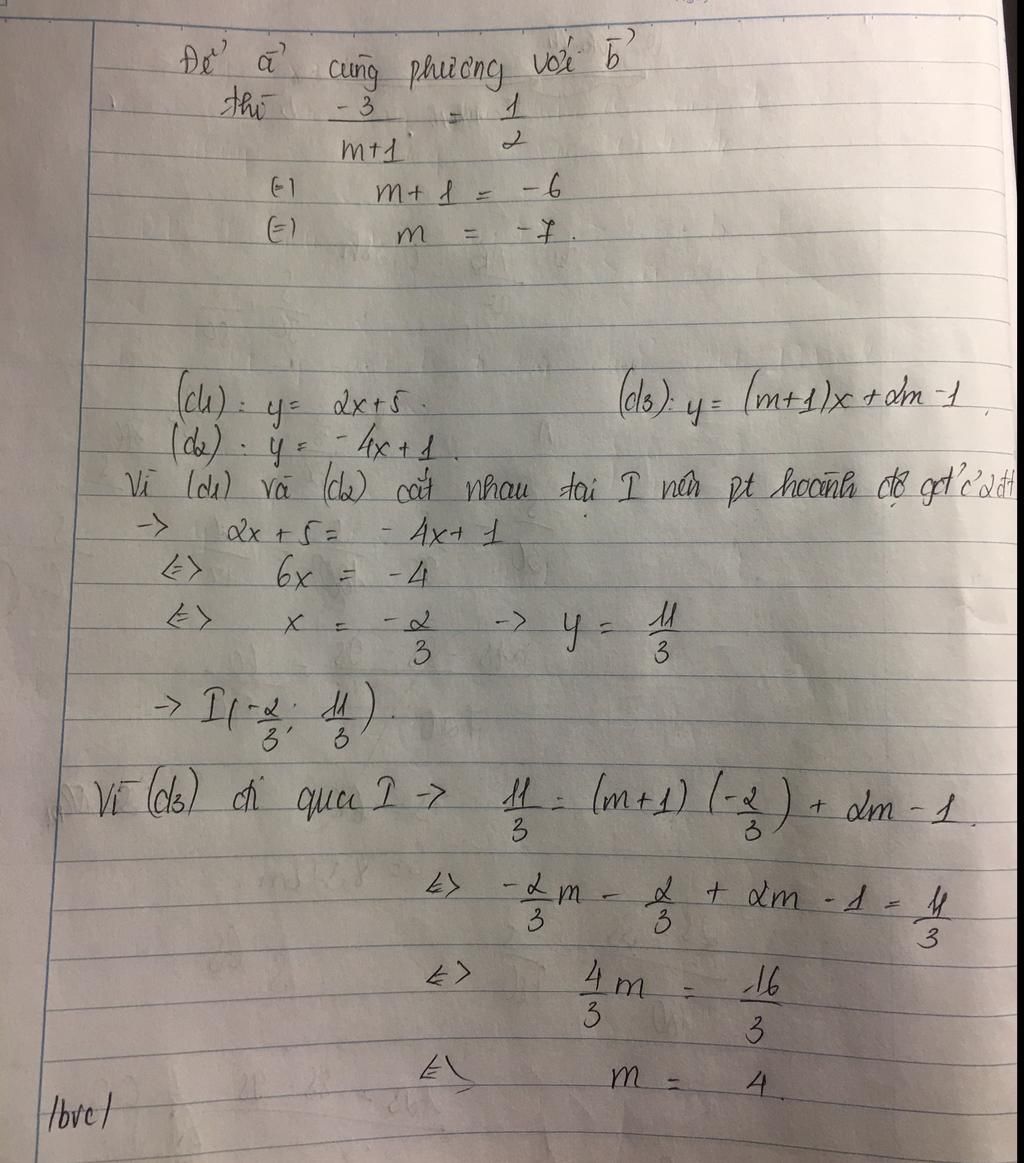 Để a⃗ cùng phương với b⃗
thì -3/(m+1) = 1/2
(=) m+1 = -6
(=) m = -7.
(d1): y = 2x+5. (d3): y = (m+1)x + 2m - 1.
(d2): y = -4x+1.
Vì (d1) và (d2) cắt nhau tại I nên pt hoành độ gđ' c' 2đt
-> 2x + 5 = -4x + 1
<=> 6x = -4
<=> x = -2/3 -> y = 11/3
-> I(-2/3; 11/3).
Vì (d3) đi qua I -> 11/3 = (m+1)(-2/3) + 2m - 1.
<=> -2/3m - 2/3 + 2m - 1 = 11/3
<=> 4/3m = 16/3
<=> m = 4.
/bvc/